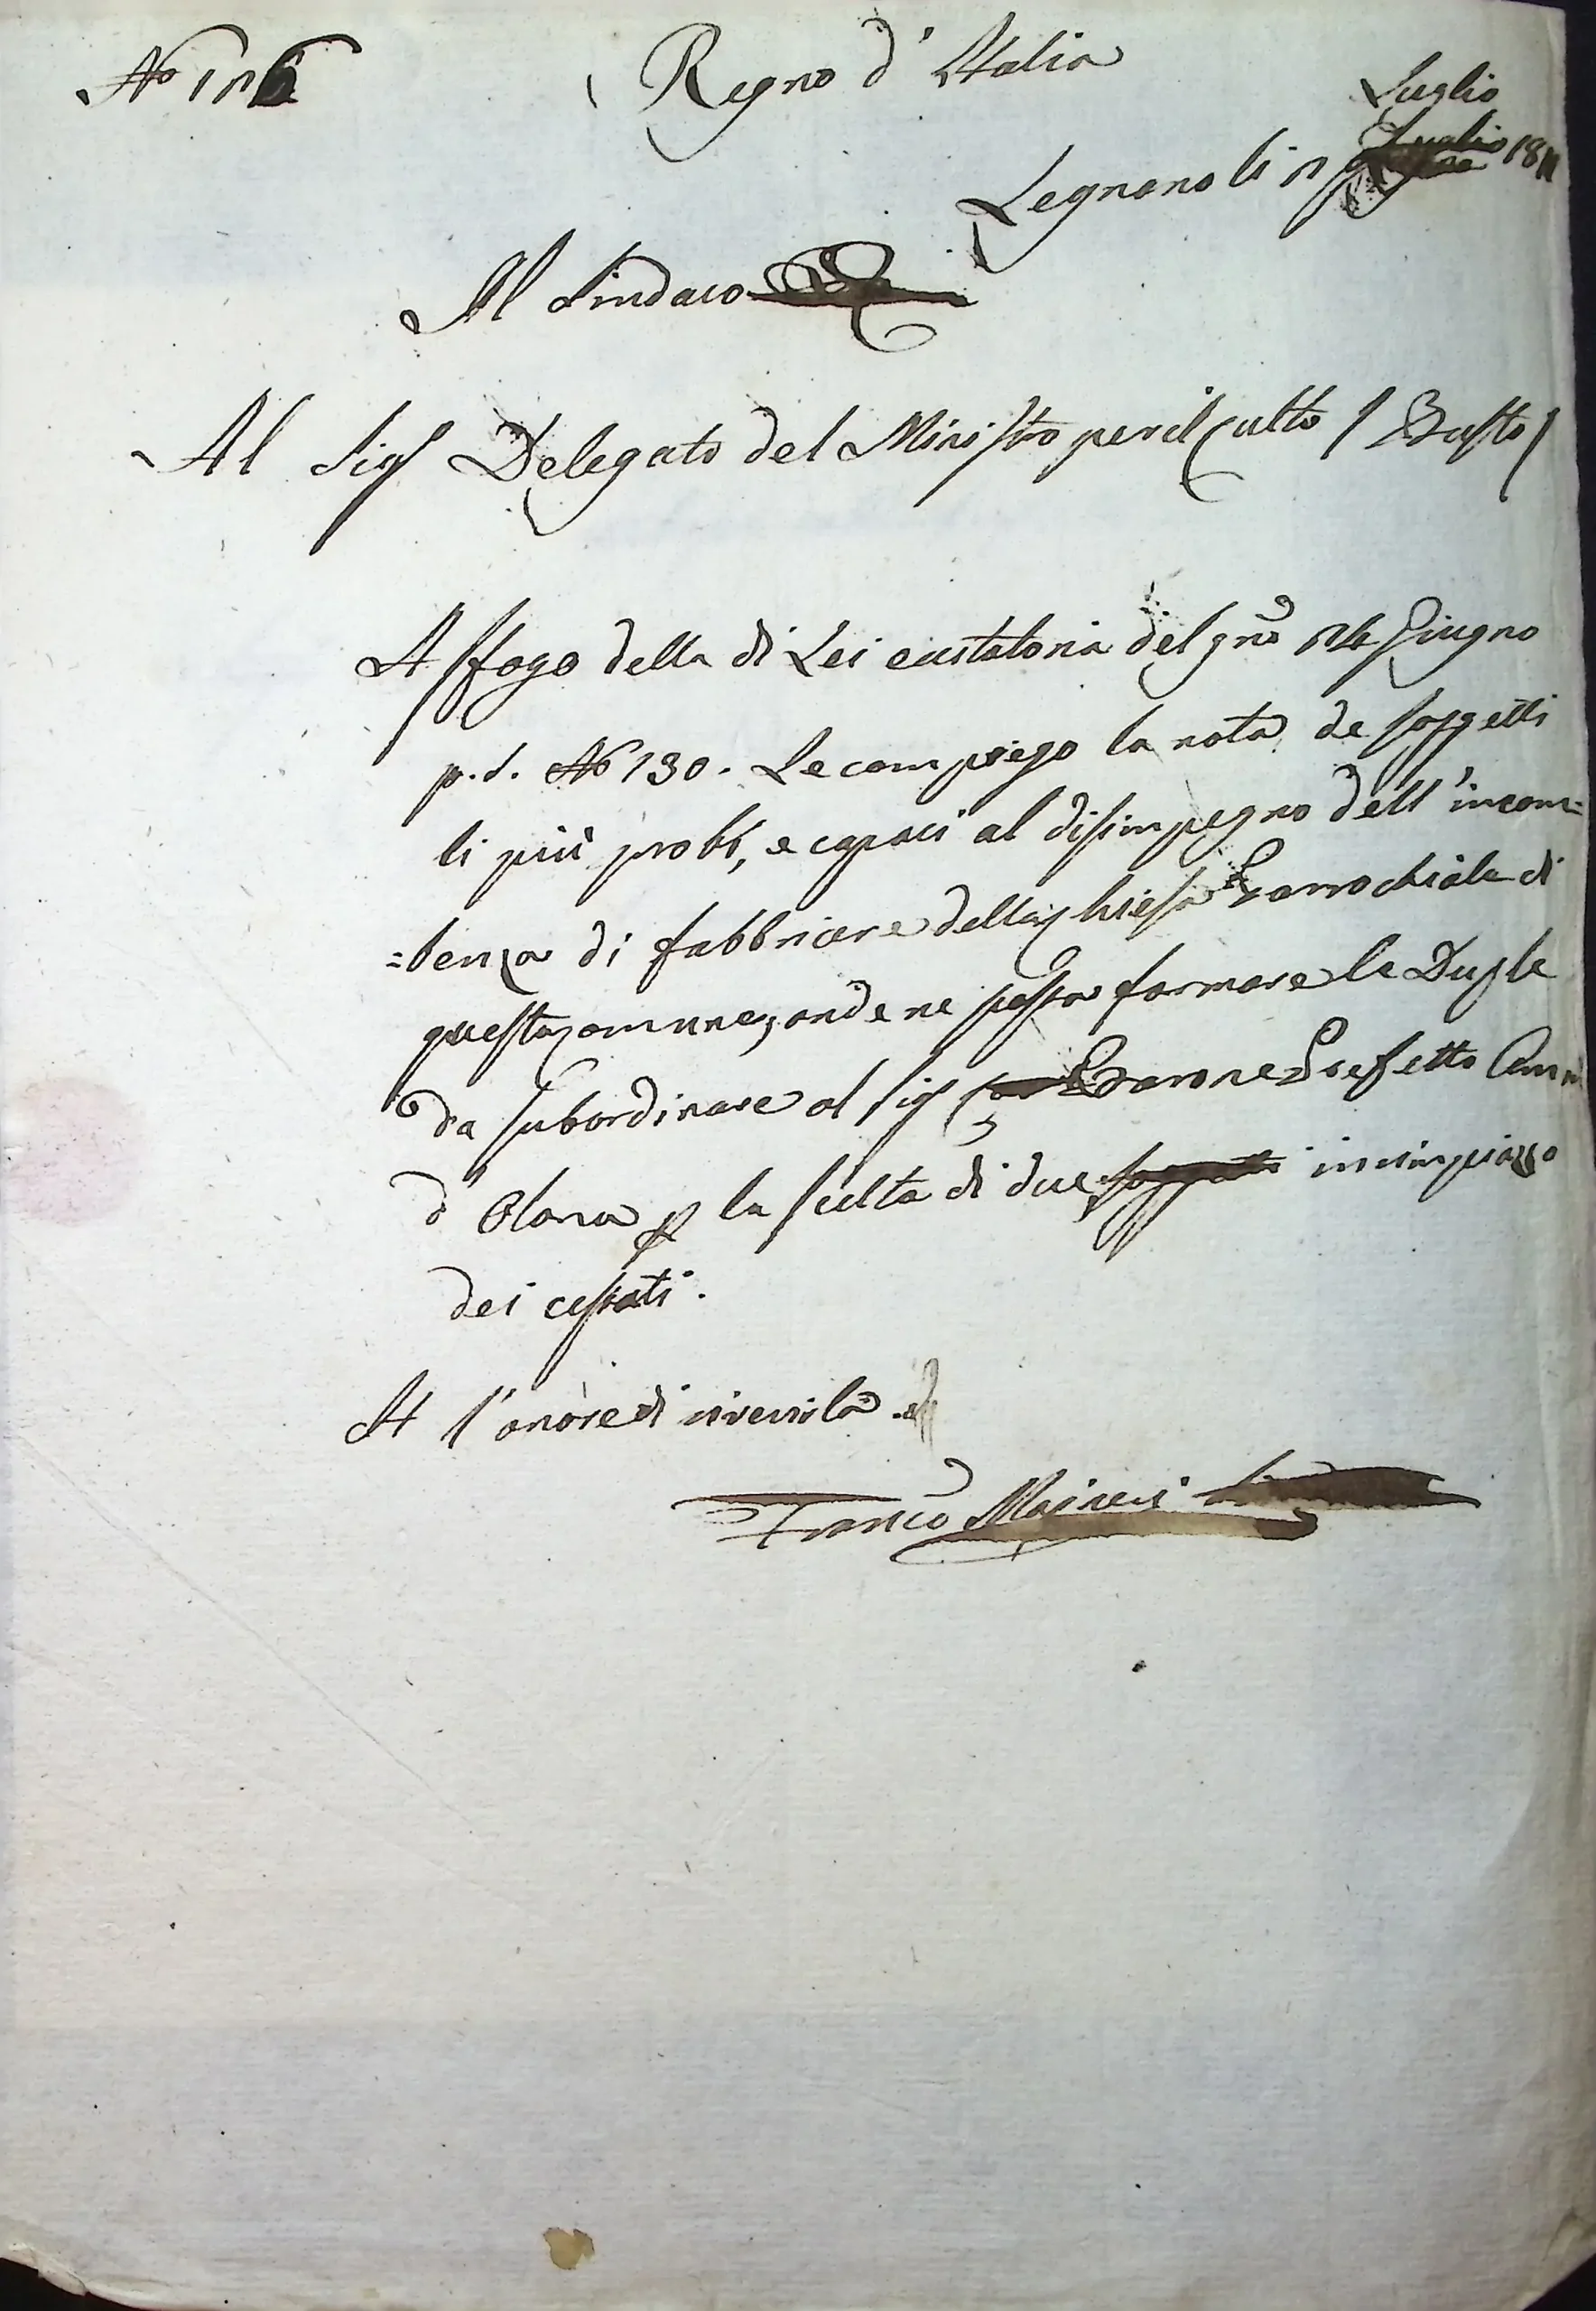 Regno d'Italia
Luglio
Legnano li 181
Il Sindaco
Al Sigr Delegato del Ministro per il Culto / Busto /
A sfogo della di Lei del gno 24 Giugno
p. s. No 130. Le compiego la nota de soggetti
li più probi, e capaci al disimpegno dell'incom=
=benza di fabbricere della Chiesa Parrochiale di
questa Comune, onde ne possa formare le Duple
da subordinare al Sigr Barone Prefetto
d'Olona p la scelta di due soggetti in rimpiazzo
dei cessati.
A l'onore di riverirla
Franco Maineri